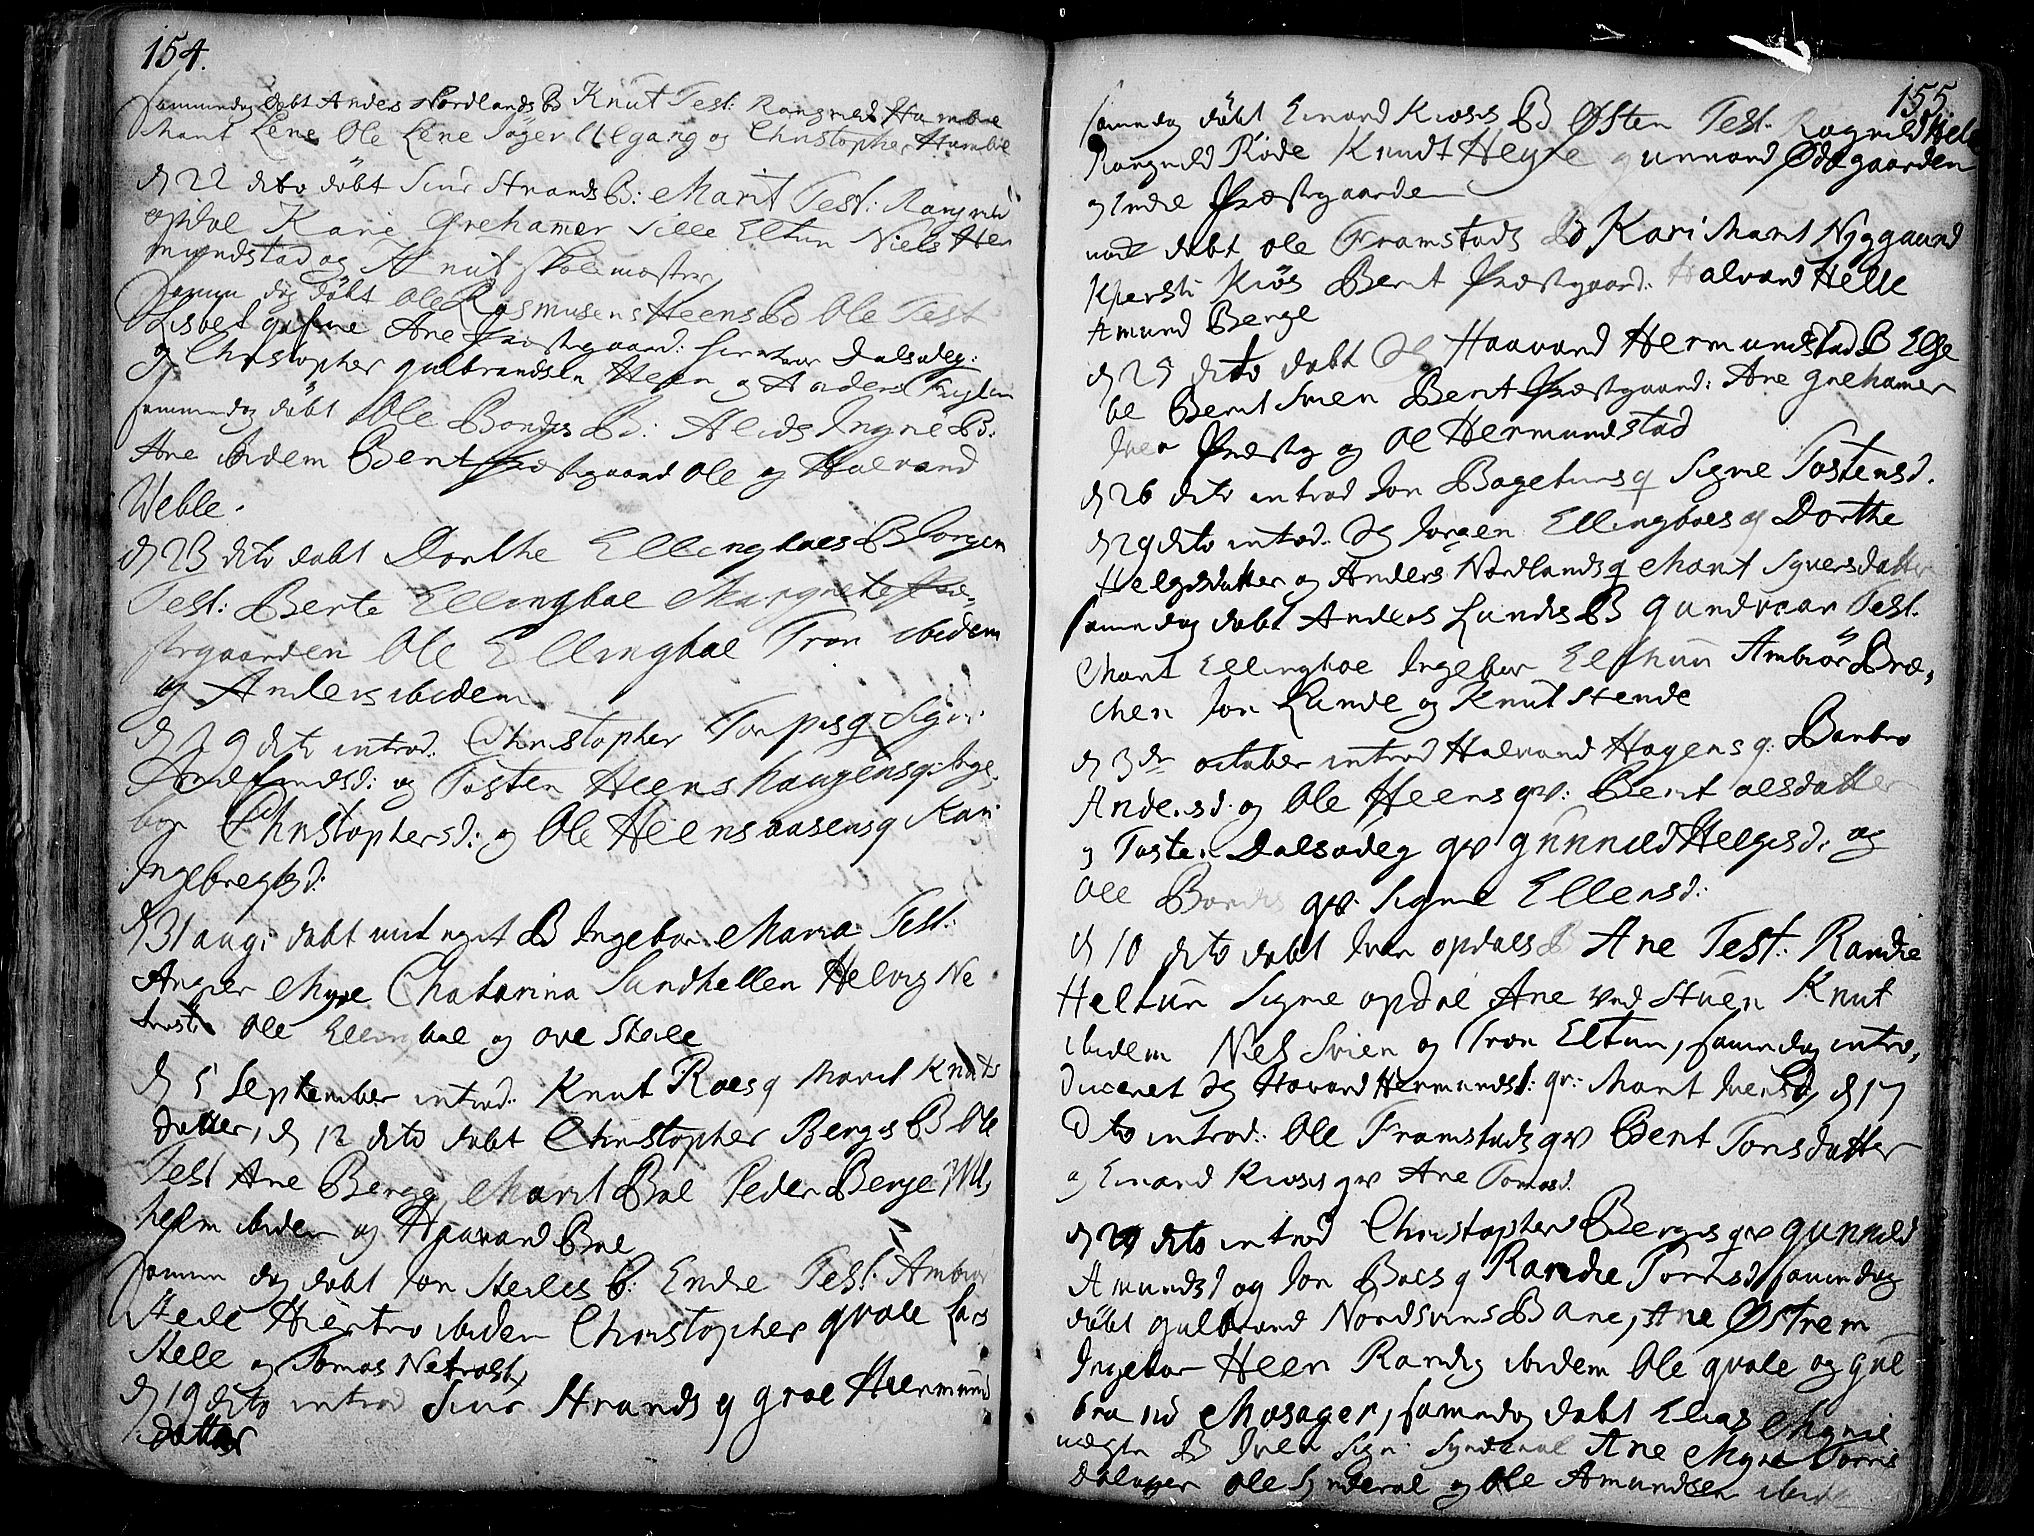 154.
sammedag döbt Anders Nordlands B Knut Test: Rangnild Hambre
Marit Lene Ole Lene Ulgang og Christopher Hambre
d 22 dito döbt Siur Strands B: Marit Test: Rangnild
opdal Karie Grehamer Sille Eltun Niels Her
mundstad og Knut skolemester
Samme dag döbt Ole Rasmusens Heens B Ole Test
Lisbet Ane Præstegaard: Dalsødeg:
og Christopher gulbrandsen Heen og Anders
sammedag döbt Ole Bondes B: Test Ingne B.
Ane ibidem Berit Præstgaard Ole og Halvard
Weble.
d 23 dito döbt Dorthe Ellingboes B Jorgen
Test: Berte Ellingboe Margrete Præ-
stgaarden Ole Ellingboe Tron ibidem
og Anders ibidem
d 29 dito introd. Christopher Torpis q Sigri
Arnefindsd: og Tosten Heens haugens q: Inge-
bor Christophersd: og Ole Heensaasens q Kari
Ingebregtsd:
d 31 aug: döbt mit eget B Ingebor Maria: Test:
Anger Myre Chatarina Sundhellen Helvig Ne
trost Ole Ellingboe og Ove Steile
d 5 September introd: Knut Roes q Marit Knuts
datter, d 12 dito döbt Christopher Berges B Ole
Test Ane Berge Marit Boe Peder Berge Wil,
helm ibidem og Haavard Boe
Samme dag döbt Jon Steiles B: Endre Test: Ambior
Steile Hiertro ibidem Christopher qvale Lars
Stele og Tomas Netrost,
d 19 dito introd Siur Strands q Groe Hermund
datter
155.
samedag döbt Einard Kiøses B Østen Test. Ragnild Hele
Rangnild Röde Knudt Heyne gunnard Ødegaarden
og Endre Præstegaarden
nock döbt Ole Framstads B Kari Marit Nygaard
Kjersti Kiös Berit Præstgaard: Halvard Helle
Amund Berge
d 25 dito döbt Haavard Hermundstads B Else
be Berit Svien Berit Præstgaard: Ane grehamer
Iver Præstg og Ole Hermundstad
d 26 dito introd Jon Bagetuns q Signe Tostensd.
d 29 dito introd: Jorgen Ellingboes q Dorthe
Helgesdatter og Anders Nordlands q Marit Syversdatter
samedag döbt Anders Lundes B gundvaar Test.
Marit Ellingboe Ingebor Elthun Ambiör Bræ,
chen Jon Lunde og Knut Stende
d 3de october introd Halvard Hagens q: Barbro
Andersd. og Ole Heens qv: Berit olesdatter
og Tosten Dalsødeg qv gunnild Helgesd: og
Ole Bondes qv: Signe Ellensd:
d 10 dito döbt Iver opdals B Ane Test: Randie
Heltun Signe opdal Ane ved Stuen Knut
ibidem Niels Svien og Tron Eltun, samedag intro,
duceret Havard Hermundst: qv: Marit Iversd, d 17
dito introd: Ole Framstads qv Berit Torsdatter
og Einard Kiøses qv Ane Tomasd.
d 24 dito introd Christopher Berges qv gunnild
Amundsd og Jon Boes q Randie Torrisd samedag
döbt gulbrand Nordsviens B ane, Ane Østrem
Ingebor Heen Randig ibidem Ole qvale og gul
brand Mosager, samedag döbt Elias Myrie
B Iver Sign: Synderol Ane Myre Torris
Dalager Ole Synderol og Ole Amundsen ibidem